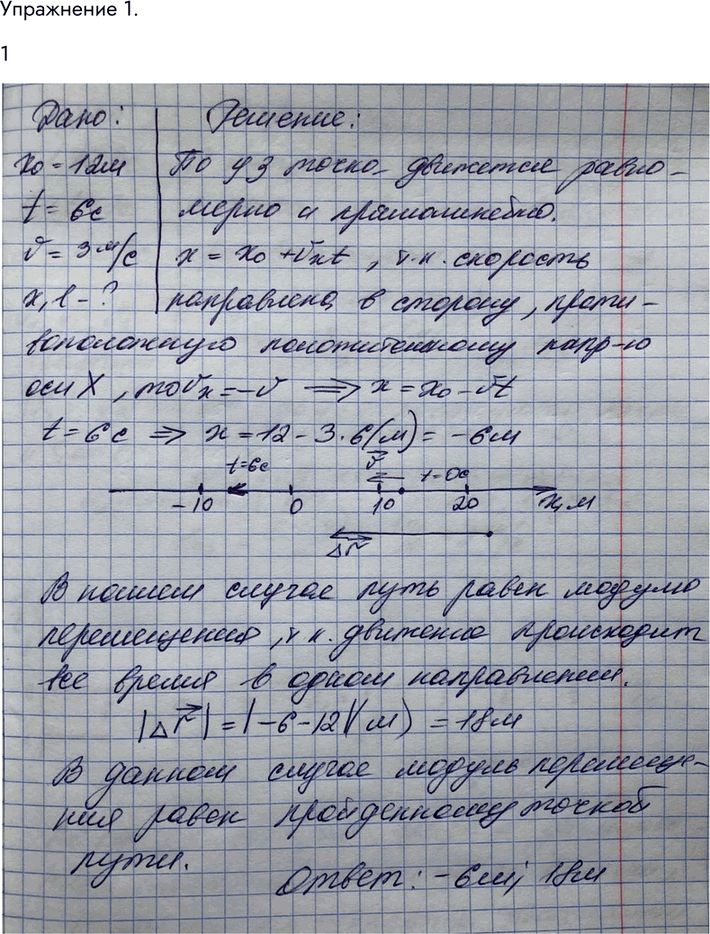 Упражнение 1.
1
Дано: Решение:
x₀ = 12м По уз точка движется равно-
t = 6с мерно и прямолинейно.
v = 3 м/с x = x₀ + vₓt, т.к. скорость
x, l - ? направлена в сторону, проти-
воположную положительному напр-ю
оси X, то vₓ = -v ⟹ x = x₀ - vt
t = 6с ⟹ x = 12 - 3·6(м) = -6м
t=6с v⃗ t=0с
-10 0 10 20 x, м
Δr⃗
В нашем случае путь равен модулю
перемещения, т.к. движение происходит
все время в одном направлении.
|Δr⃗| = |-6-12|(м) = 18м
В данном случае модуль перемеще-
ния равен пройденному точкой
пути.
Ответ: -6м; 18м